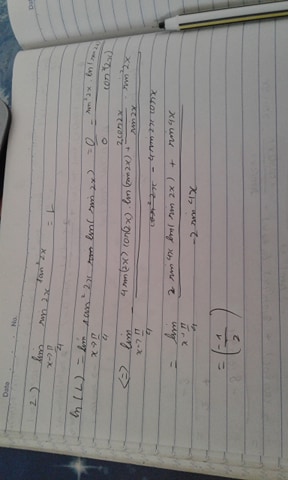 Date No.
Date
2) lim x→π/4 sin 2x^tan²2x = L
ln(L) = lim x→π/4 tan²2x ln(sin 2x) = 0/0 = sin²2x . ln(sin 2x) / cos²2x
<=> lim x→π/4 4 sin(2x) cos(2x) . ln(sin 2x) + 2cos2x / sin 2x . sin²2x / - 4 sin 2x cos x
= lim x→π/4 2 sin 4x ln(sin 2x) + sin 4x / -2 sin 4x
= (-1/2)